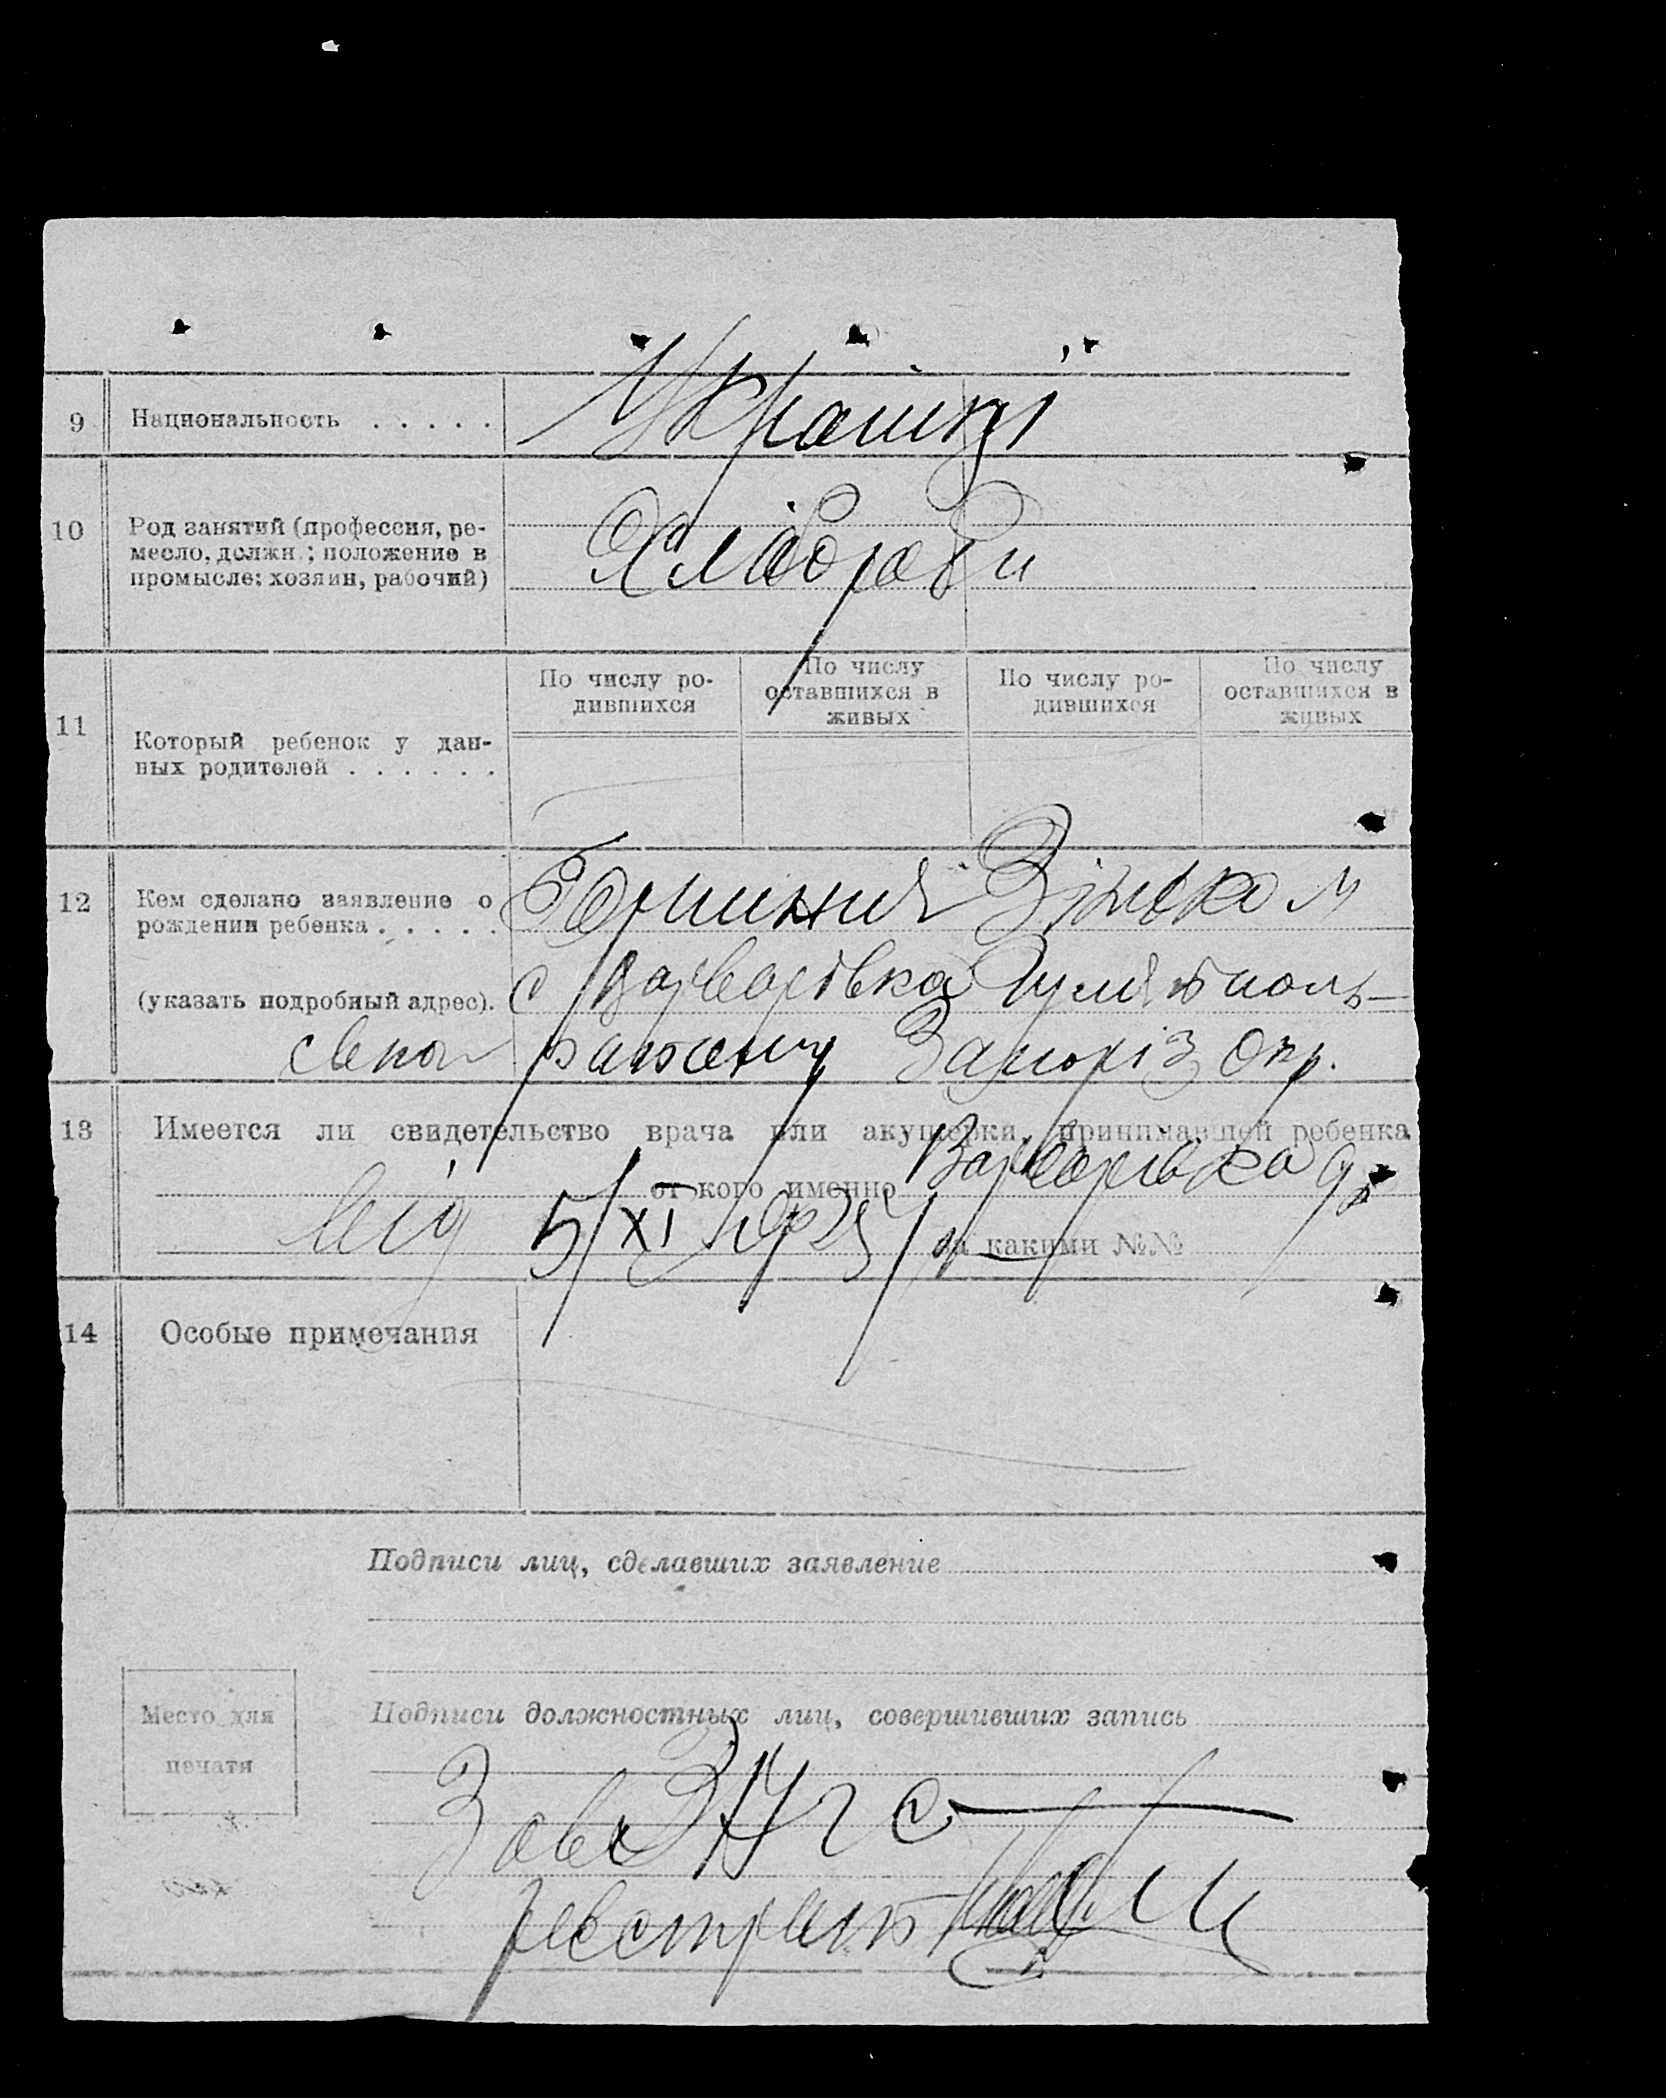 9 Национальность . . . . . Україці
10 Род занятий (профессия, ре-
месло, должн.; положение в
промысле: хозяин, рабочий)
Хлібороби
11 Который ребенок у дан-
ных родителей . . . . . .
По числу ро-
дившихся
По числу
оставшихся в
живых
По числу ро-
дившихся
По числу
оставшихся в
живых
12 Кем сделано заявление о
рождении ребенка . . . . .
(указать подробный адрес).
с Варварівка Гуляйполь-
ского району Запоріз Окр.
13 Имеется ли свидетельство врача или акушерки, принимавшей ребенка
от кого именно Варварівка
від 5/XI 1925 за какими №№
14 Особые примечания
Подписи лиц, сделавших заявление
Место для
печати
Подписи должностных лиц, совершивших запись
Зав ЗАГС